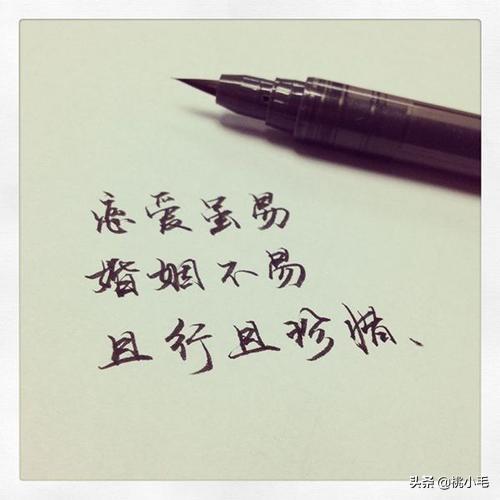 恋爱虽易
婚姻不易
且行且珍惜、
头条 @桃小毛